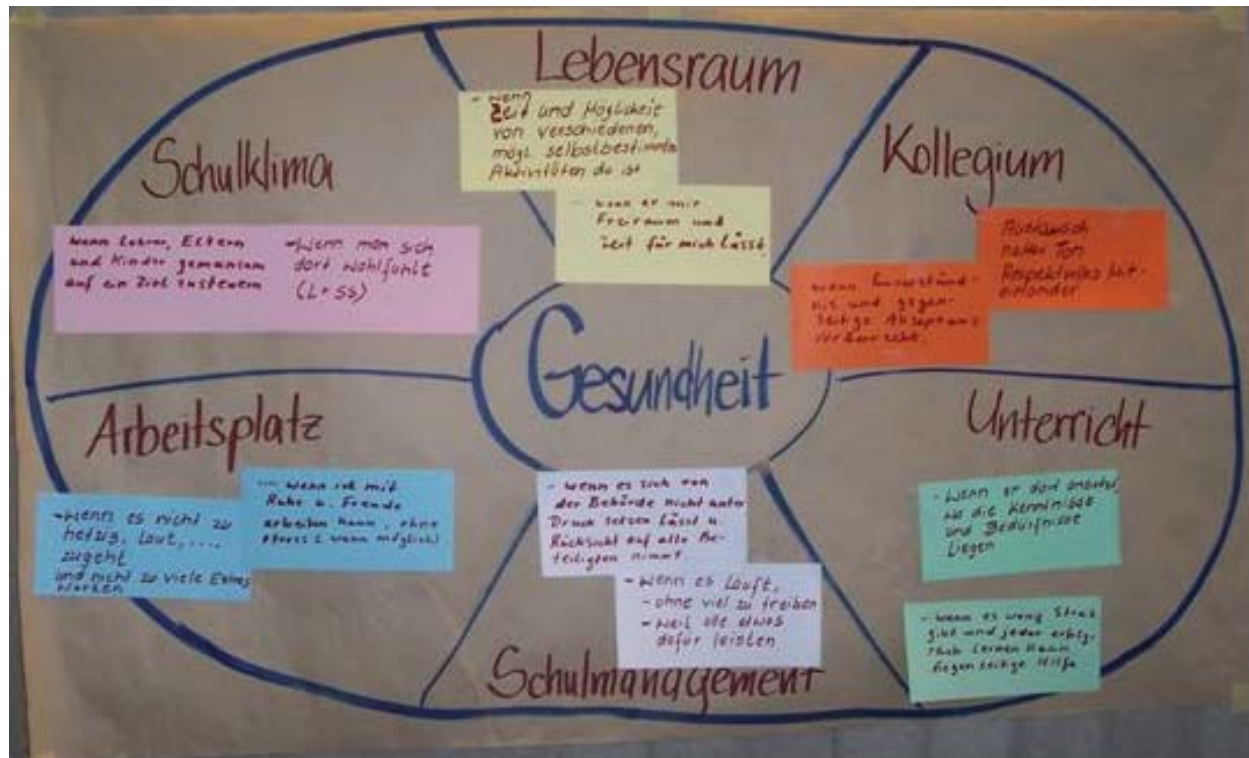 Lebensraum
- wenn
Zeit und Möglichkeit
von verschiedenen,
mögl. selbstbestimmte
Aktivitäten da ist
- wenn er mir
Freiraum und
Zeit für mich lässt,
Schulklima
wenn Lehrer, Eltern
und Kinder gemeinsam
auf ein Ziel zusteuern
- Wenn man sich
dort wohlfühlt
(L + SS)
Kollegium
Austausch
netter Ton
Respektvolles Mit-
einander
wenn
nis und gegen-
seitige Akzeptanz
vorherrscht.
Gesundheit
Arbeitsplatz
- wenn es nicht zu
hetzig, laut, ...,
zugeht
und nicht zu viele Extras
- wenn ich mit
Ruhe u. Freude
arbeiten kann, ohne
Stress (wenn möglich)
Unterricht
- Wenn er dort ansetzt,
wo die Kenntnisse
und Bedürfnisse
liegen
- wenn es wenig Stress
gibt und jeder erfolg-
reich lernen kann
Gegenseitige Hilfe
- wenn es sich von
der Behörde nicht unter
Druck setzen lässt u.
Rücksicht auf alle Be-
teiligten nimmt
- Wenn es läuft,
- ohne viel zu treiben
- weil alle etwas
dafür leisten
Schulmanagement